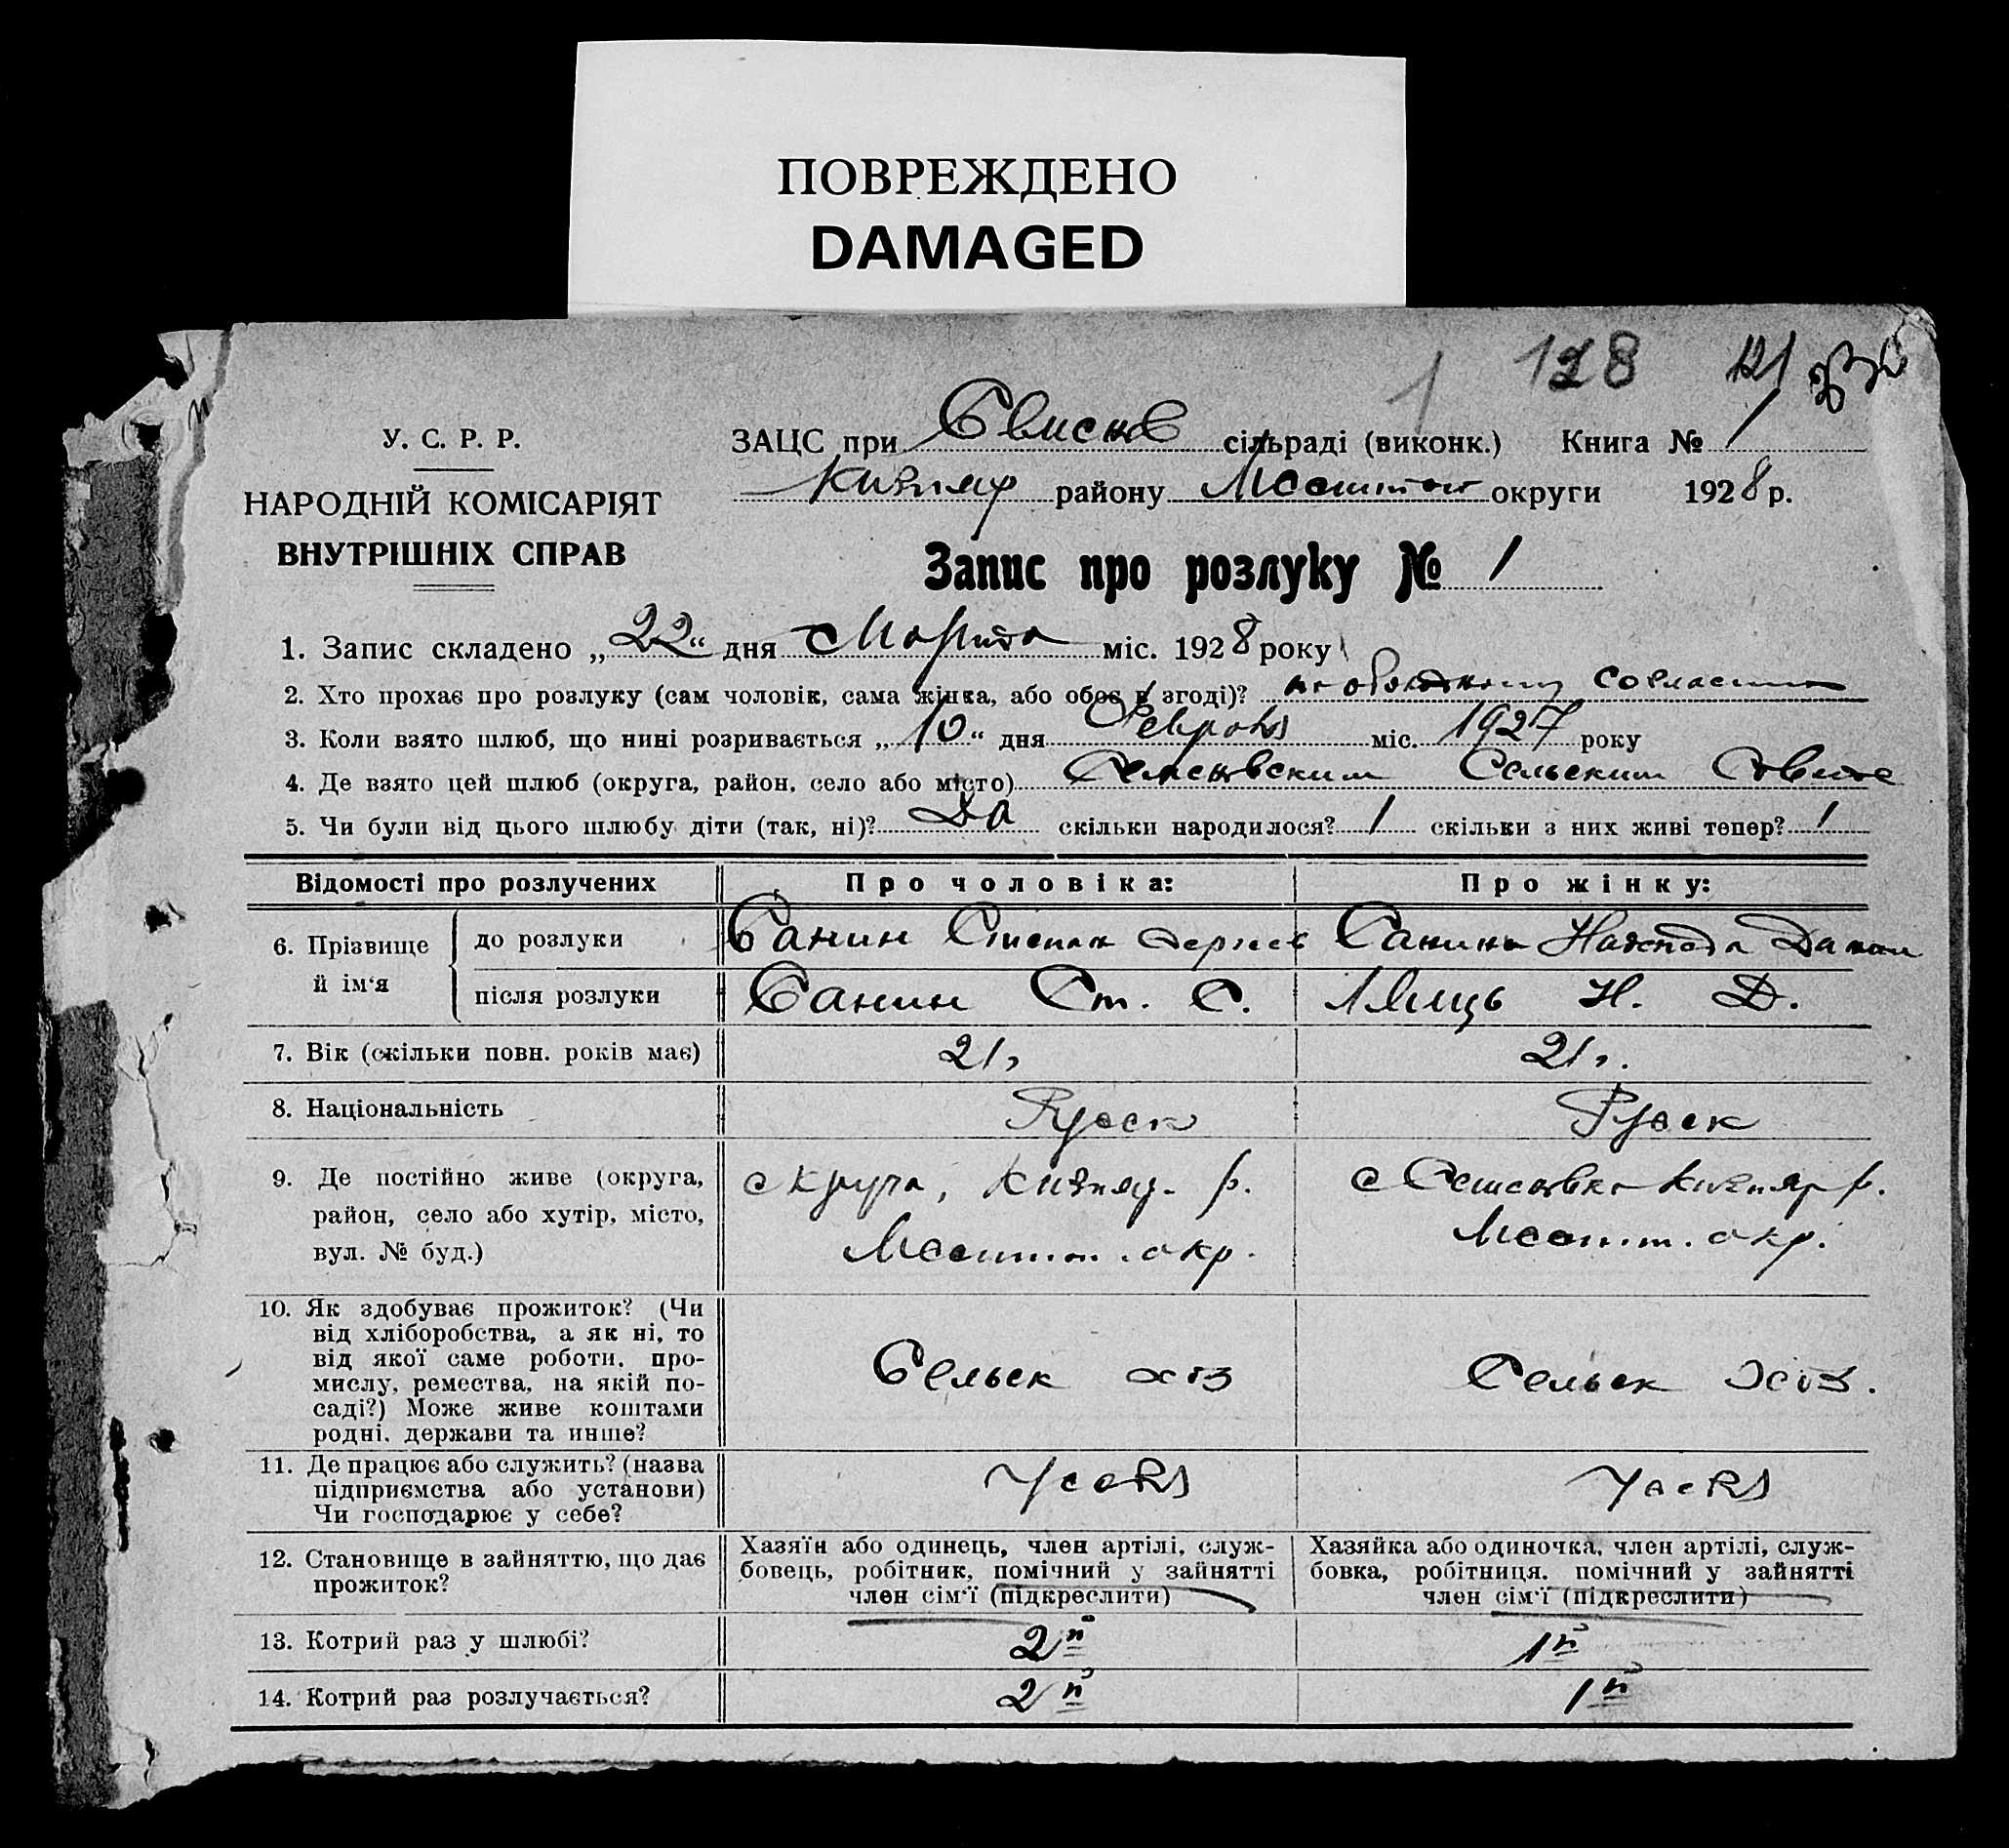 ПОВРЕЖДЕНО
DAMAGED
1 128 121
У. С. Р. Р.
НАРОДНІЙ КОМІСАРІЯТ
ВНУТРІШНІХ СПРАВ
ЗАЦС при сільраді (виконк.) Книга № 1
району округи 1928 р.
Запис про розлуку № 1
1. Запис складено „22“ дня Марта міс. 1928 року
2. Хто прохає про розлуку (сам чоловік, сама жінка, або обоє в згоді)?
3. Коли взято шлюб, що нині розривається „10“ дня міс. 1927 року
4. Де взято цей шлюб (округа, район, село або місто) Сельским
5. Чи були від цього шлюбу діти (так, ні)? Да скільки народилося? 1 скільки з них живі тепер? 1
Відомості про розлучених
Про чоловіка:
Про жінку:
6. Прізвище й ім‘я
до розлуки
Санин Степан
Санина Надежда
після розлуки
Санин Ст. С.
Н. Д.
7. Вік (скільки повн. років має)
21
21
8. Національність
Русск
Русск
9. Де постійно живе (округа, район, село або хутір, місто, вул. № буд.)
р.
окр.
с р.
окр.
10. Як здобуває прожиток? (Чи
від хліборобства, а як ні, то
від якої саме роботи, про-
мислу, ремества, на якій по-
саді?) Може живе коштами
родні, держави та инше?
Сельск хоз
Сельск Хоз.
11. Де працює або служить? (назва
підприємства або установи)
Чи господарює у себе?
12. Становище в зайняттю, що дає
прожиток?
Хазяїн або одинець, член артілі, служ-
бовець, робітник, помічний у зайнятті
член сім‘ї (підкреслити)
Хазяйка або одиночка, член артілі, служ-
бовка, робітниця, помічний у зайнятті
член сім‘ї (підкреслити)
13. Котрий раз у шлюбі?
2й
1й
14. Котрий раз розлучається?
2й
1й